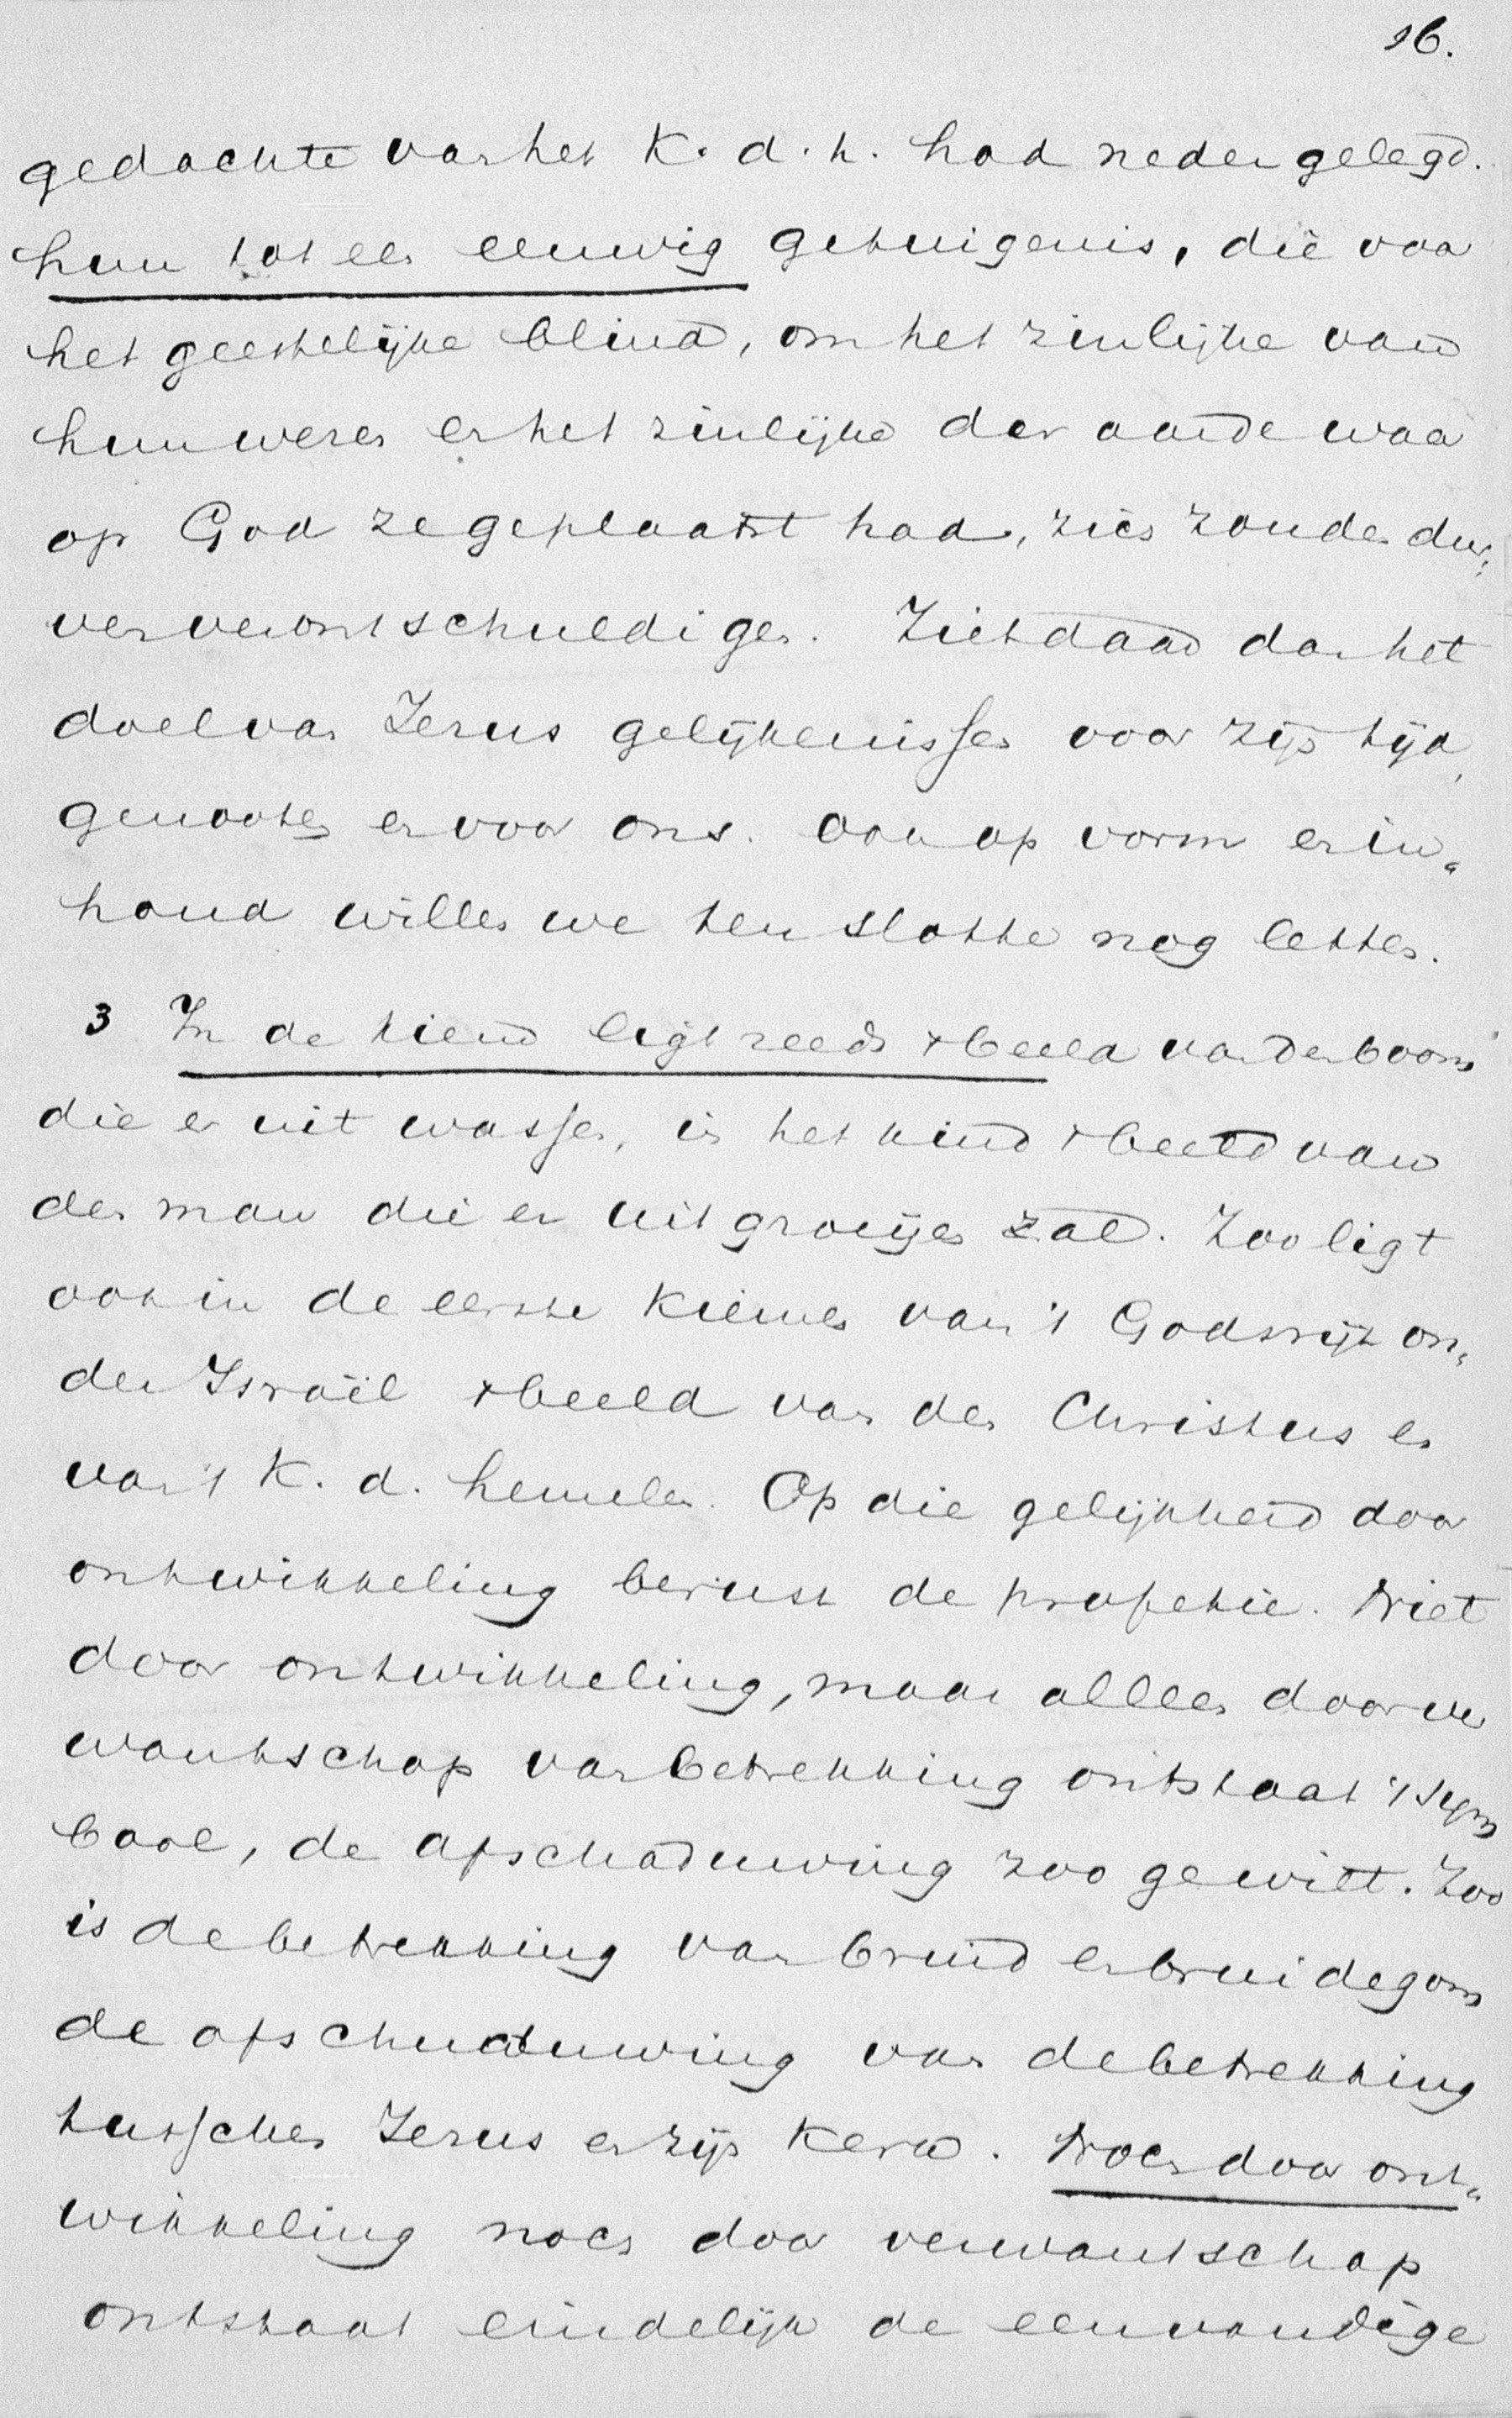 16.
gedachte van het K. d. h. had nedergelegd.
hun tot een eeuwig getuigenis, die voor
het geestelijke blind, om het zinlijke van
hun wezen en het zinlijke der aarde waar
op God ze geplaatst had, zich zouden dur„
ven verontschuldigen. Ziet daar dan het
doel van Jezus gelijkenissen voor zijn tijd„
genooten en voor ons. Ook op vorm en in„
houd willen we ten slotte nog letten.
3 In de kiem ligt reeds 't beeld van den boom
die er uit wassen, in het kind 't beeld van
den man die er uit groeijen zal. Zoo ligt
ook in de eerste kiemen van 't Godsrijk on„
der Israël 't beeld van den Christus en
van 't K. d. hemelen. Op die gelijkheid door
ontwikkeling berust de profetie. Niet
door ontwikkeling, maar alleen door ver
wantschap van betrekking ontstaat 't sym
bool, de afschaduwing zoo ge wilt. Zoo
is de betrekking van bruid en bruidegom
de afschaduwing van de betrekking
tusschen Jezus en zijn Kerk. Noch door ont„
wikkeling noch door verwantschap
ontstaat eindelijk de eenvoudige